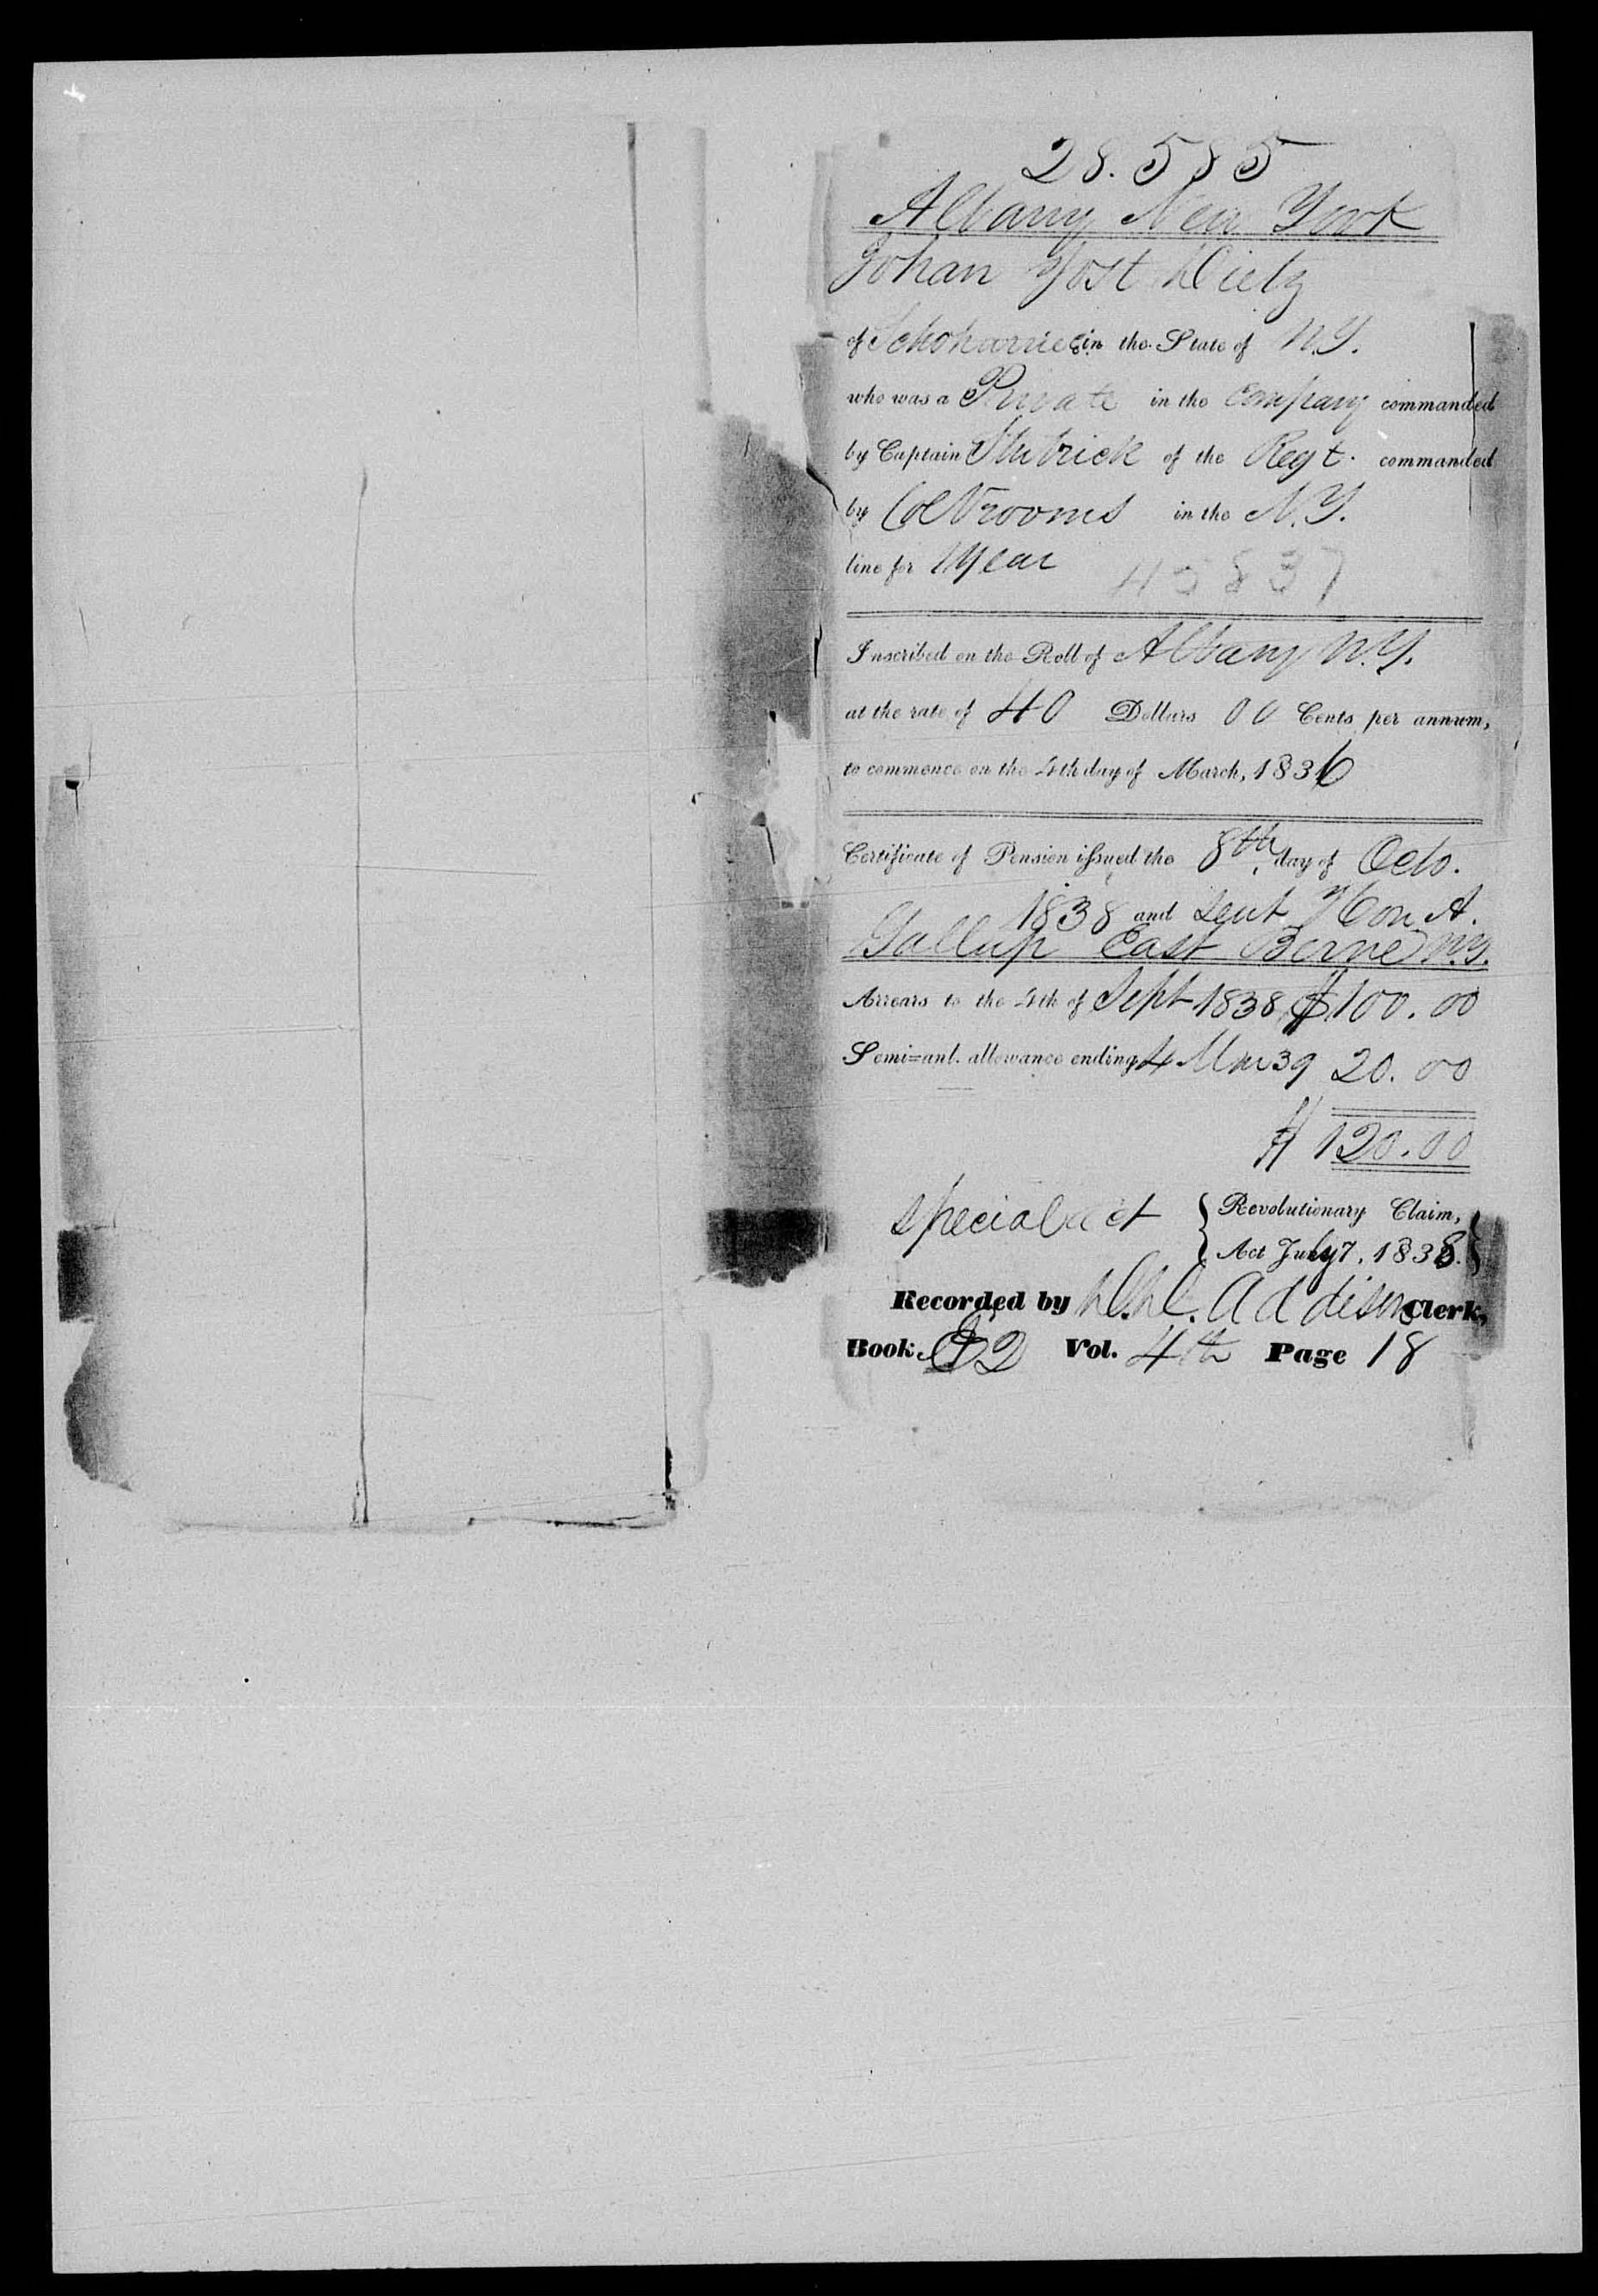 28.585
Albany New York
Johan Yost Dietz
of Schoharrie in the State of N.Y.
who was a Private in the Company commanded
by Captain Stubrick of the Regt. commanded
by Col Vrooms in the N.Y.
line for 1 year
45837
Inscribed on the Roll of Albany N.Y.
at the rate of 40 Dollars 00 Cents per annum,
to commence on the 4th day of March, 1836
Certificate of Pension issued the 8th day of Octo.
1838 and sent Hon. A.
Gallup East Berne N.Y.
Arrears to the 4th of Sept 1838 $100.00
Semi-anl. allowance ending 4 Mar 39 20.00
$120.00
special act { Revolutionary Claim, }
{ Act July 7, 1838. }
Recorded by Addison Clerk,
Book Vol. 4th Page 18